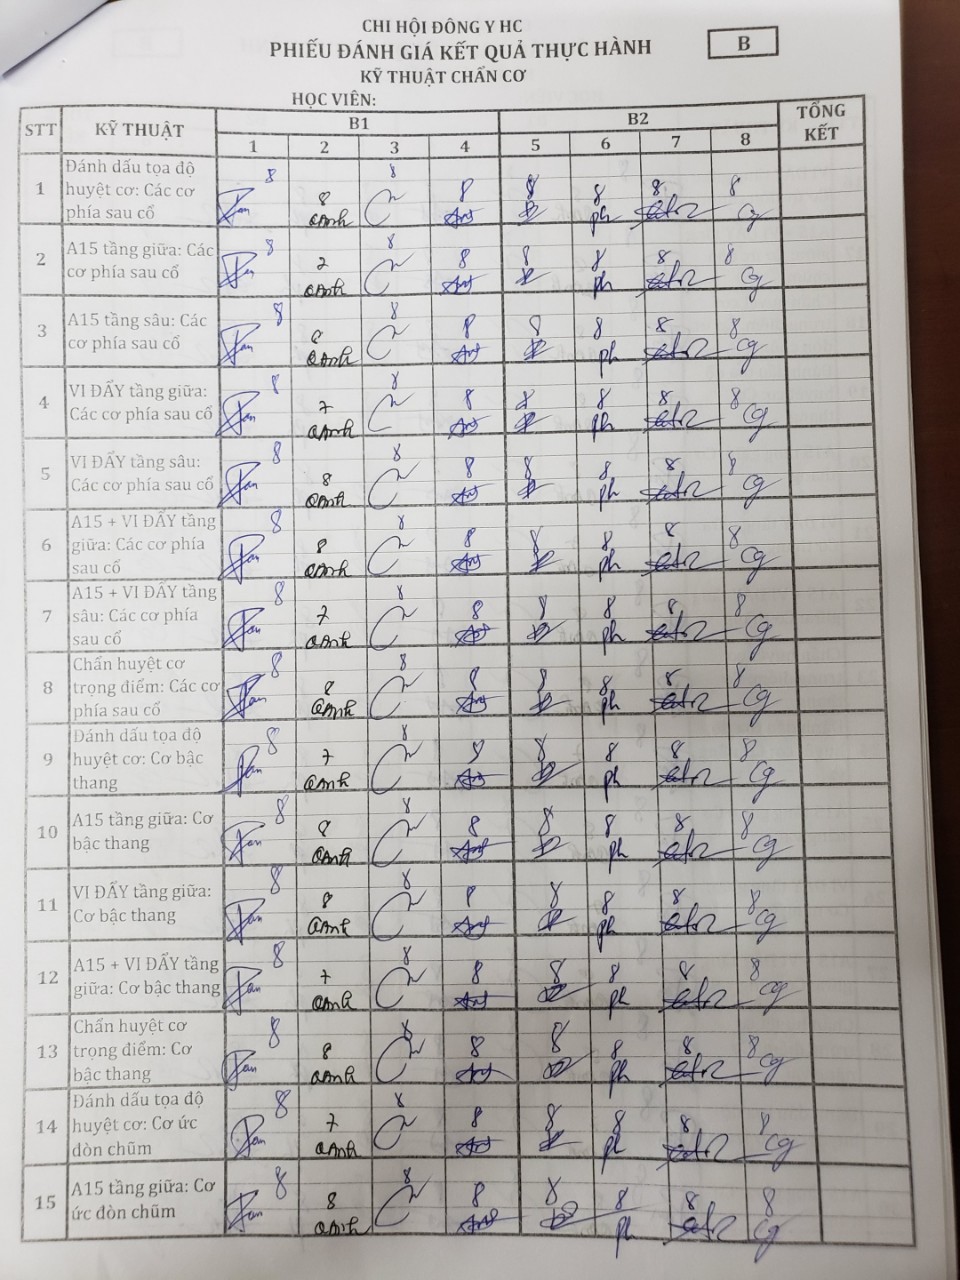 CHI HỘI ĐÔNG Y HC
PHIẾU ĐÁNH GIÁ KẾT QUẢ THỰC HÀNH
B
KỸ THUẬT CHẨN CƠ
HỌC VIÊN:
STT KỸ THUẬT B1 B2 TỔNG KẾT
1 2 3 4 5 6 7 8
1 Đánh dấu tọa độ huyệt cơ: Các cơ phía sau cổ
8 8 8 8 8 8 8 8
QAnh ph Cg
2 A15 tầng giữa: Các cơ phía sau cổ
8 7 8 8 8 8 8 8
QAnh ph Cg
3 A15 tầng sâu: Các cơ phía sau cổ
8 8 8 8 8 8 8 8
QAnh ph Cg
4 VI ĐẨY tầng giữa: Các cơ phía sau cổ
8 7 8 8 8 8 8 8
QAnh ph Cg
5 VI ĐẨY tầng sâu: Các cơ phía sau cổ
8 8 8 8 8 8 8 8
QAnh ph Cg
6 A15 + VI ĐẨY tầng giữa: Các cơ phía sau cổ
8 8 8 8 8 8 8 8
QAnh ph Cg
7 A15 + VI ĐẨY tầng sâu: Các cơ phía sau cổ
8 7 8 8 8 8 8 8
QAnh ph Cg
8 Chẩn huyệt cơ trọng điểm: Các cơ phía sau cổ
8 8 8 8 8 8 8 8
QAnh ph Cg
9 Đánh dấu tọa độ huyệt cơ: Cơ bậc thang
8 7 8 8 8 8 8 8
QAnh ph Cg
10 A15 tầng giữa: Cơ bậc thang
8 8 8 8 8 8 8 8
QAnh ph Cg
11 VI ĐẨY tầng giữa: Cơ bậc thang
8 8 8 8 8 8 8 8
QAnh ph Cg
12 A15 + VI ĐẨY tầng giữa: Cơ bậc thang
8 7 8 8 8 8 8 8
QAnh ph Cg
13 Chẩn huyệt cơ trọng điểm: Cơ bậc thang
8 8 8 8 8 8 8 8
QAnh ph Cg
14 Đánh dấu tọa độ huyệt cơ: Cơ ức đòn chũm
8 7 8 8 8 8 8 8
QAnh ph Cg
15 A15 tầng giữa: Cơ ức đòn chũm
8 8 8 8 8 8 8 8
QAnh ph Cg